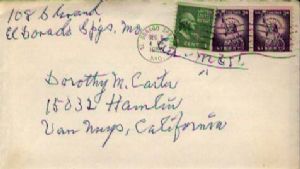 108 S Grand
El Dorado Spgs. Mo.
Air Mail
Dorothy M. Carter
15032 Hamlin
Van Nuys, California